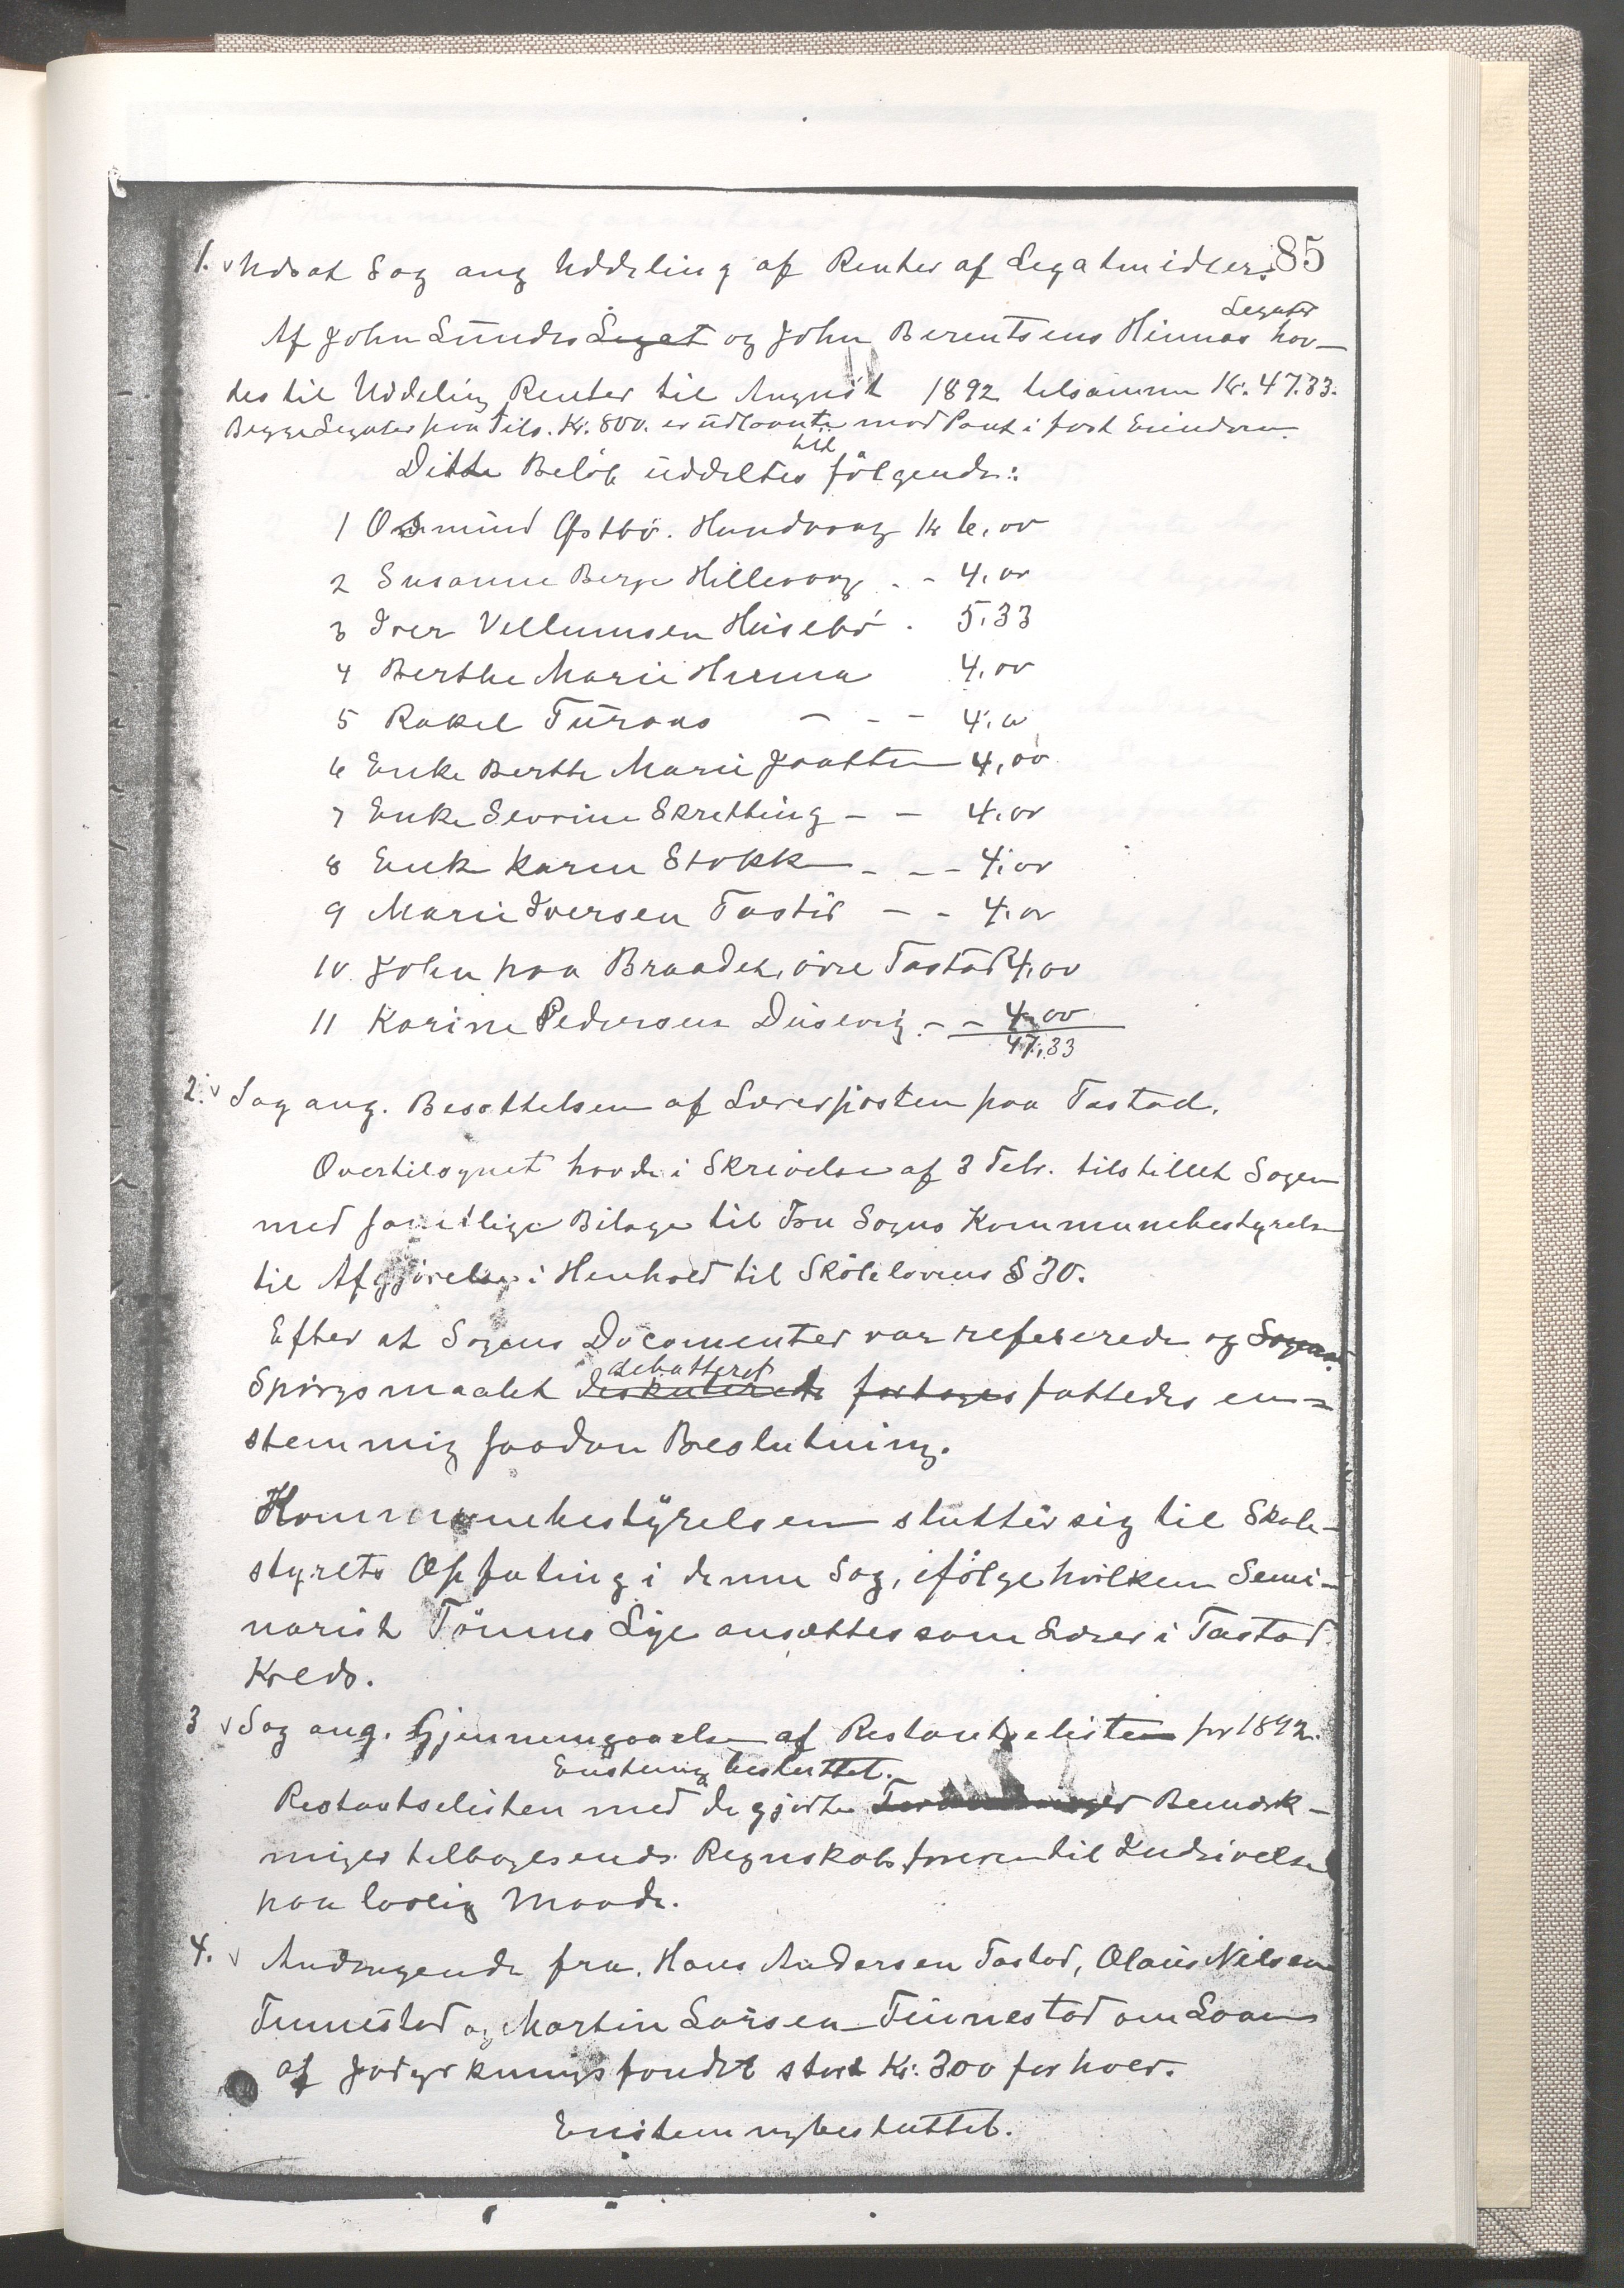 85
1. v Udsat Sag ang Uddeling af Renter af Legatmidler.
Legater
Af John Lundes Legat og John Berentsens Hinnas hav-
des til Uddeling Renter til August 1892 tilsamm Kr. 47.33.
Begge Legater paa Tils. Kr. 800. er udlaante mod Pant i fast Eiendom.
til
Dette Beløb uddeltes følgende:
1 Osmund Østbø. Hundvaag Kr 6,00
2 Susanne Berge Hillevaag - - 4,00
3 Iver Vellumsen Husebø. 5.33
4 Berthe Marie Hinna 4,00
5 Rakel Turaas - - - 4,00
6 Enke Berthe Marie Jaatten 4,00
7 Enke Sevrine Skretting - - 4,00
8 Enke Karen Stokke - - - 4,00
9 Marie Iversen Tastad - - 4,00
10 John paa Braadet, øvre Tastad 4,00
11 Karine Pedersen Dusevig - - 4,00
47,33
2. v Sag ang. Besættelsen af Lærerposten paa Tastad.
Overtilsynet havde i Skrivelse af 3 Febr. tilstillet Sagen
med samtlige Bilage til Fru Sogns Kommunebestyrelse
til Afgjørelse i Henhold til Skolelovens § 30.
Efter at Sagens Documenter var refererede og Sagen
debatteret
Spørgsmaalet diskuterede fattedes en-
stemmig saadan Beslutning.
Kommunebestyrelsen slutter sig til Skole-
styrets Opfatning i denne Sag, ifølge hvilken Semi-
narist Tønnes Lye ansættes som Lærer i Tastad
Kreds.
3 v Sag ang. Gjennemgaaelse af Restantselisten for 1892.
Enstemig besluttet.
Restantselisten med de gjorte Bemærk-
ninger tilbagesendes Regnskabsføreren til Inddrivelse
paa lovlig Maade.
4. v Andragende fra. Hans Andersen Tastad, Olaus Nilsen
Tunnestad og Martin Larsen Finnestad om Laan
af Jorddyrkningsfondet stort Kr. 300 for hver.
Enstemmig besluttet.